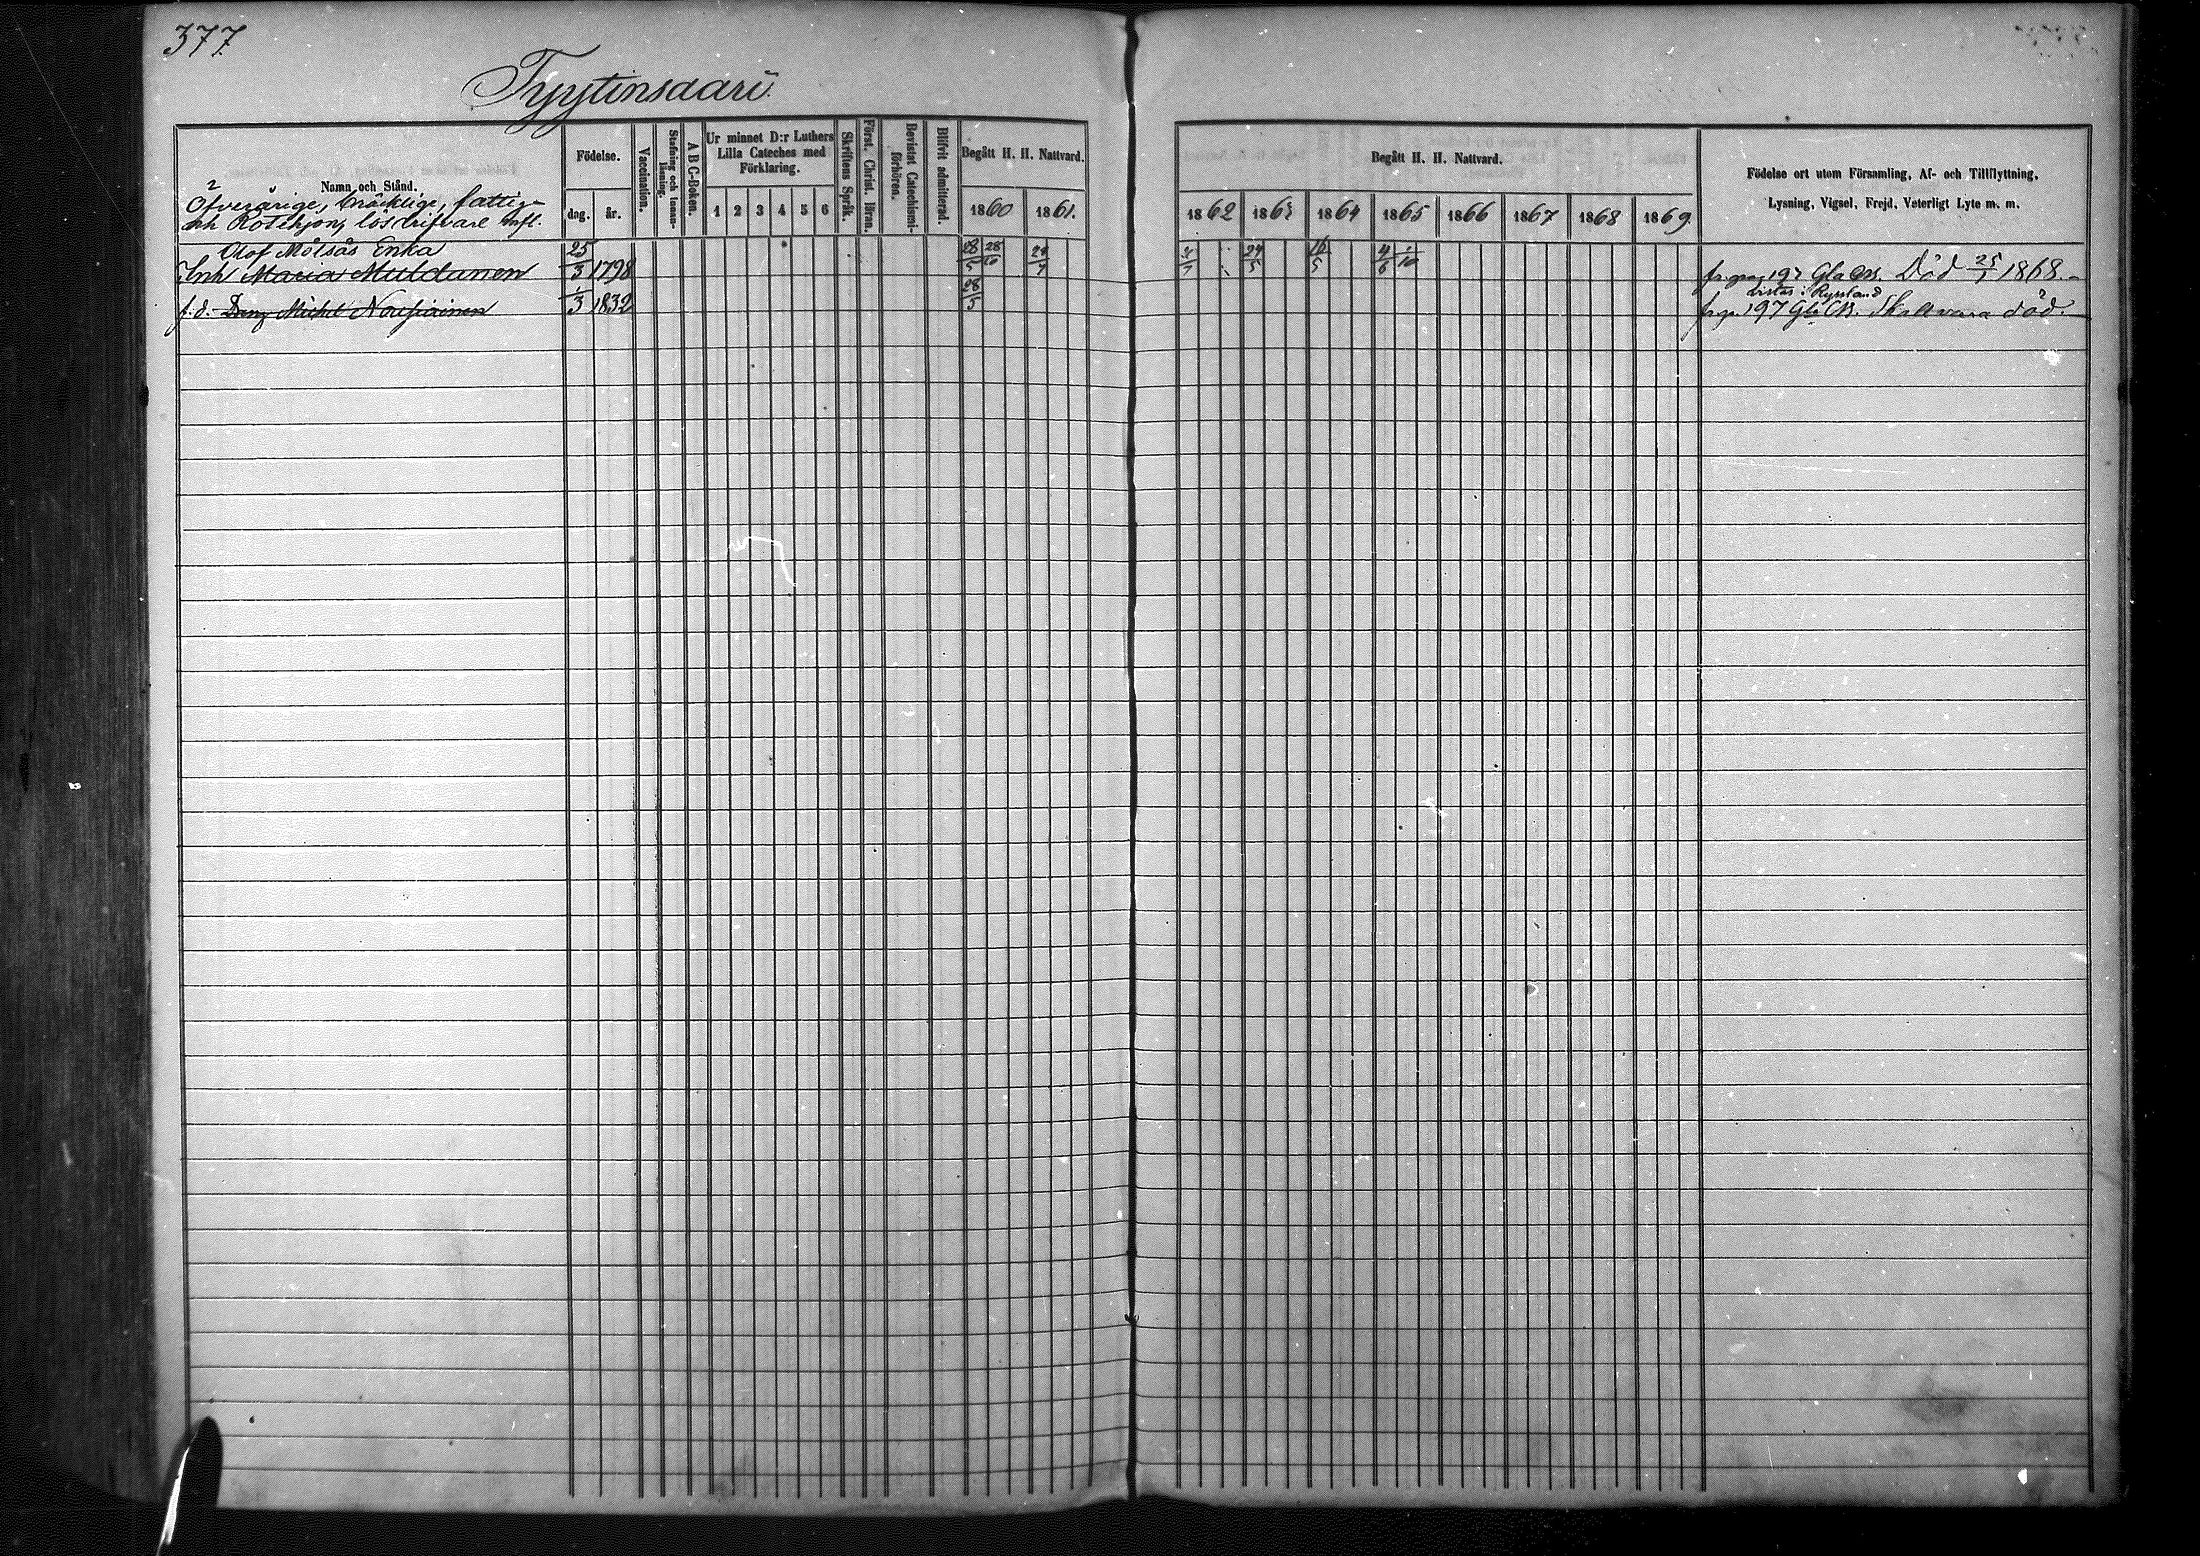 377.
Tyytinsaari.
Namn och Stånd.
Öfverårige, bräcklige, fattige
och Rotehjon, lösdrifvare m fl.
Födelse.
dag. år.
Vaccination.
Stafning och Innanläsning.
A B C-Boken.
Ur minnet D:r Luthers
Lilla Cateches med
Förklaring.
1 2 3 4 5 6
Skriftens Språk.
Först. Christ. läran.
Bevistat Catechismiförhören.
Blifvit admitterad.
Begått H. H. Nattvard.
1860 1861.
Begått H. H. Nattvard.
1862 1863 1864 1865 1866 1867 1868 1869.
Födelse ort utom Församling, Af- och Tillflyttning,
Lysning, Vigsel, Frejd, Veterligt Lyte m. m.
Olof Mölsäs Enka
Inh Maria Muldanen 25/3 1798 28/5 28/10 24/5 4/6 1/10 197 Gla CB. Död 25/1 1868.
Vistas i Ryssland
f. d. Dräng Michel Nousiainen 1/3 1832 28/5 197 Gla CB. Skall vara död.